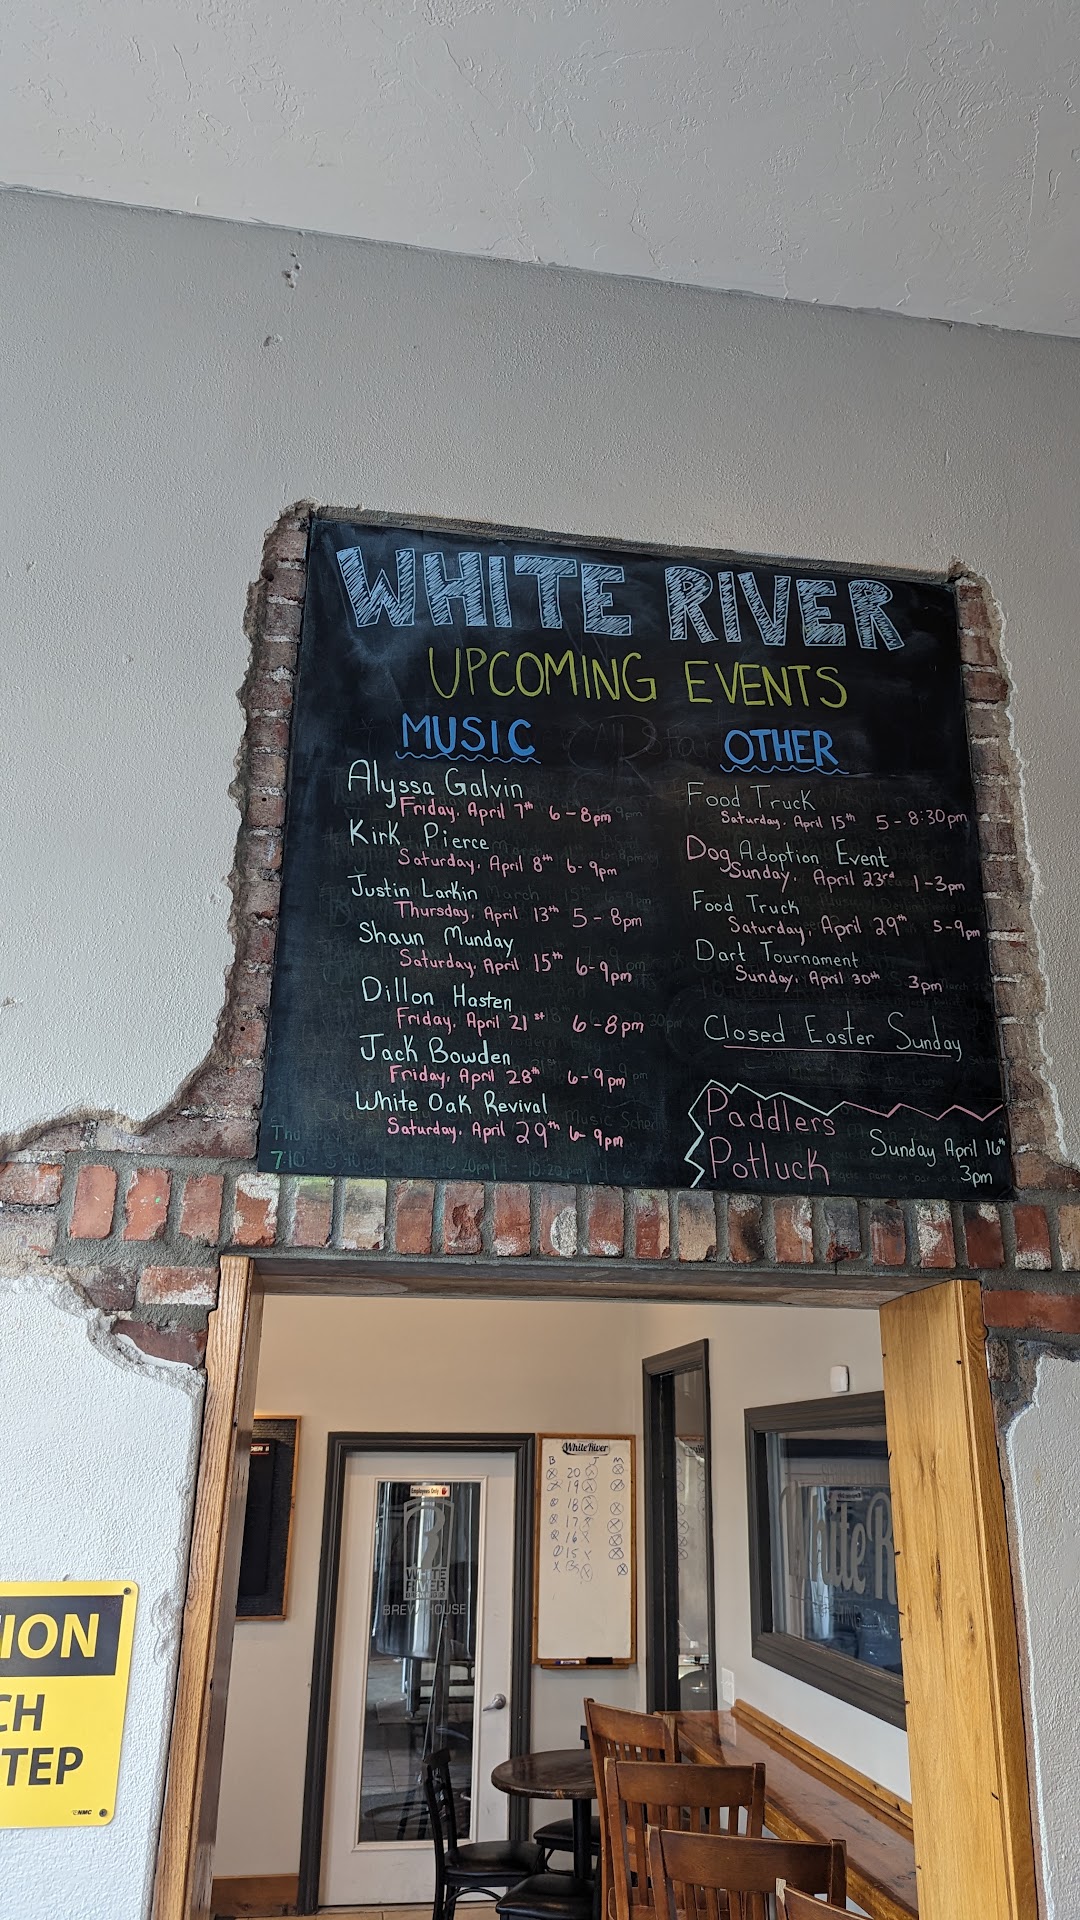 WHITE RIVER
UPCOMING EVENTS
MUSIC
Alyssa Galvin
Friday, April 7th 6-8pm
Kirk Pierce
Saturday, April 8th 6-9pm
Justin Larkin
Thursday, April 13th 5-8pm
Shaun Munday
Saturday, April 15th 6-9pm
Dillon Hasten
Friday, April 21st 6-8pm
Jack Bowden
Friday, April 28th 6-9pm
White Oak Revival
Saturday, April 29th 6-9pm
OTHER
Food Truck
Saturday, April 15th 5-8:30pm
Dog Adoption Event
Sunday, April 23rd 1-3pm
Food Truck
Saturday, April 29th 5-9pm
Dart Tournament
Sunday, April 30th 3pm
Closed Easter Sunday
Paddlers
Potluck
Sunday April 16th
3pm
Employees Only
WHITE
RIVER
BREW HOUSE
White River
B J M
20
19
18
17
16
15
White R
ION
CH
TEP
NMC